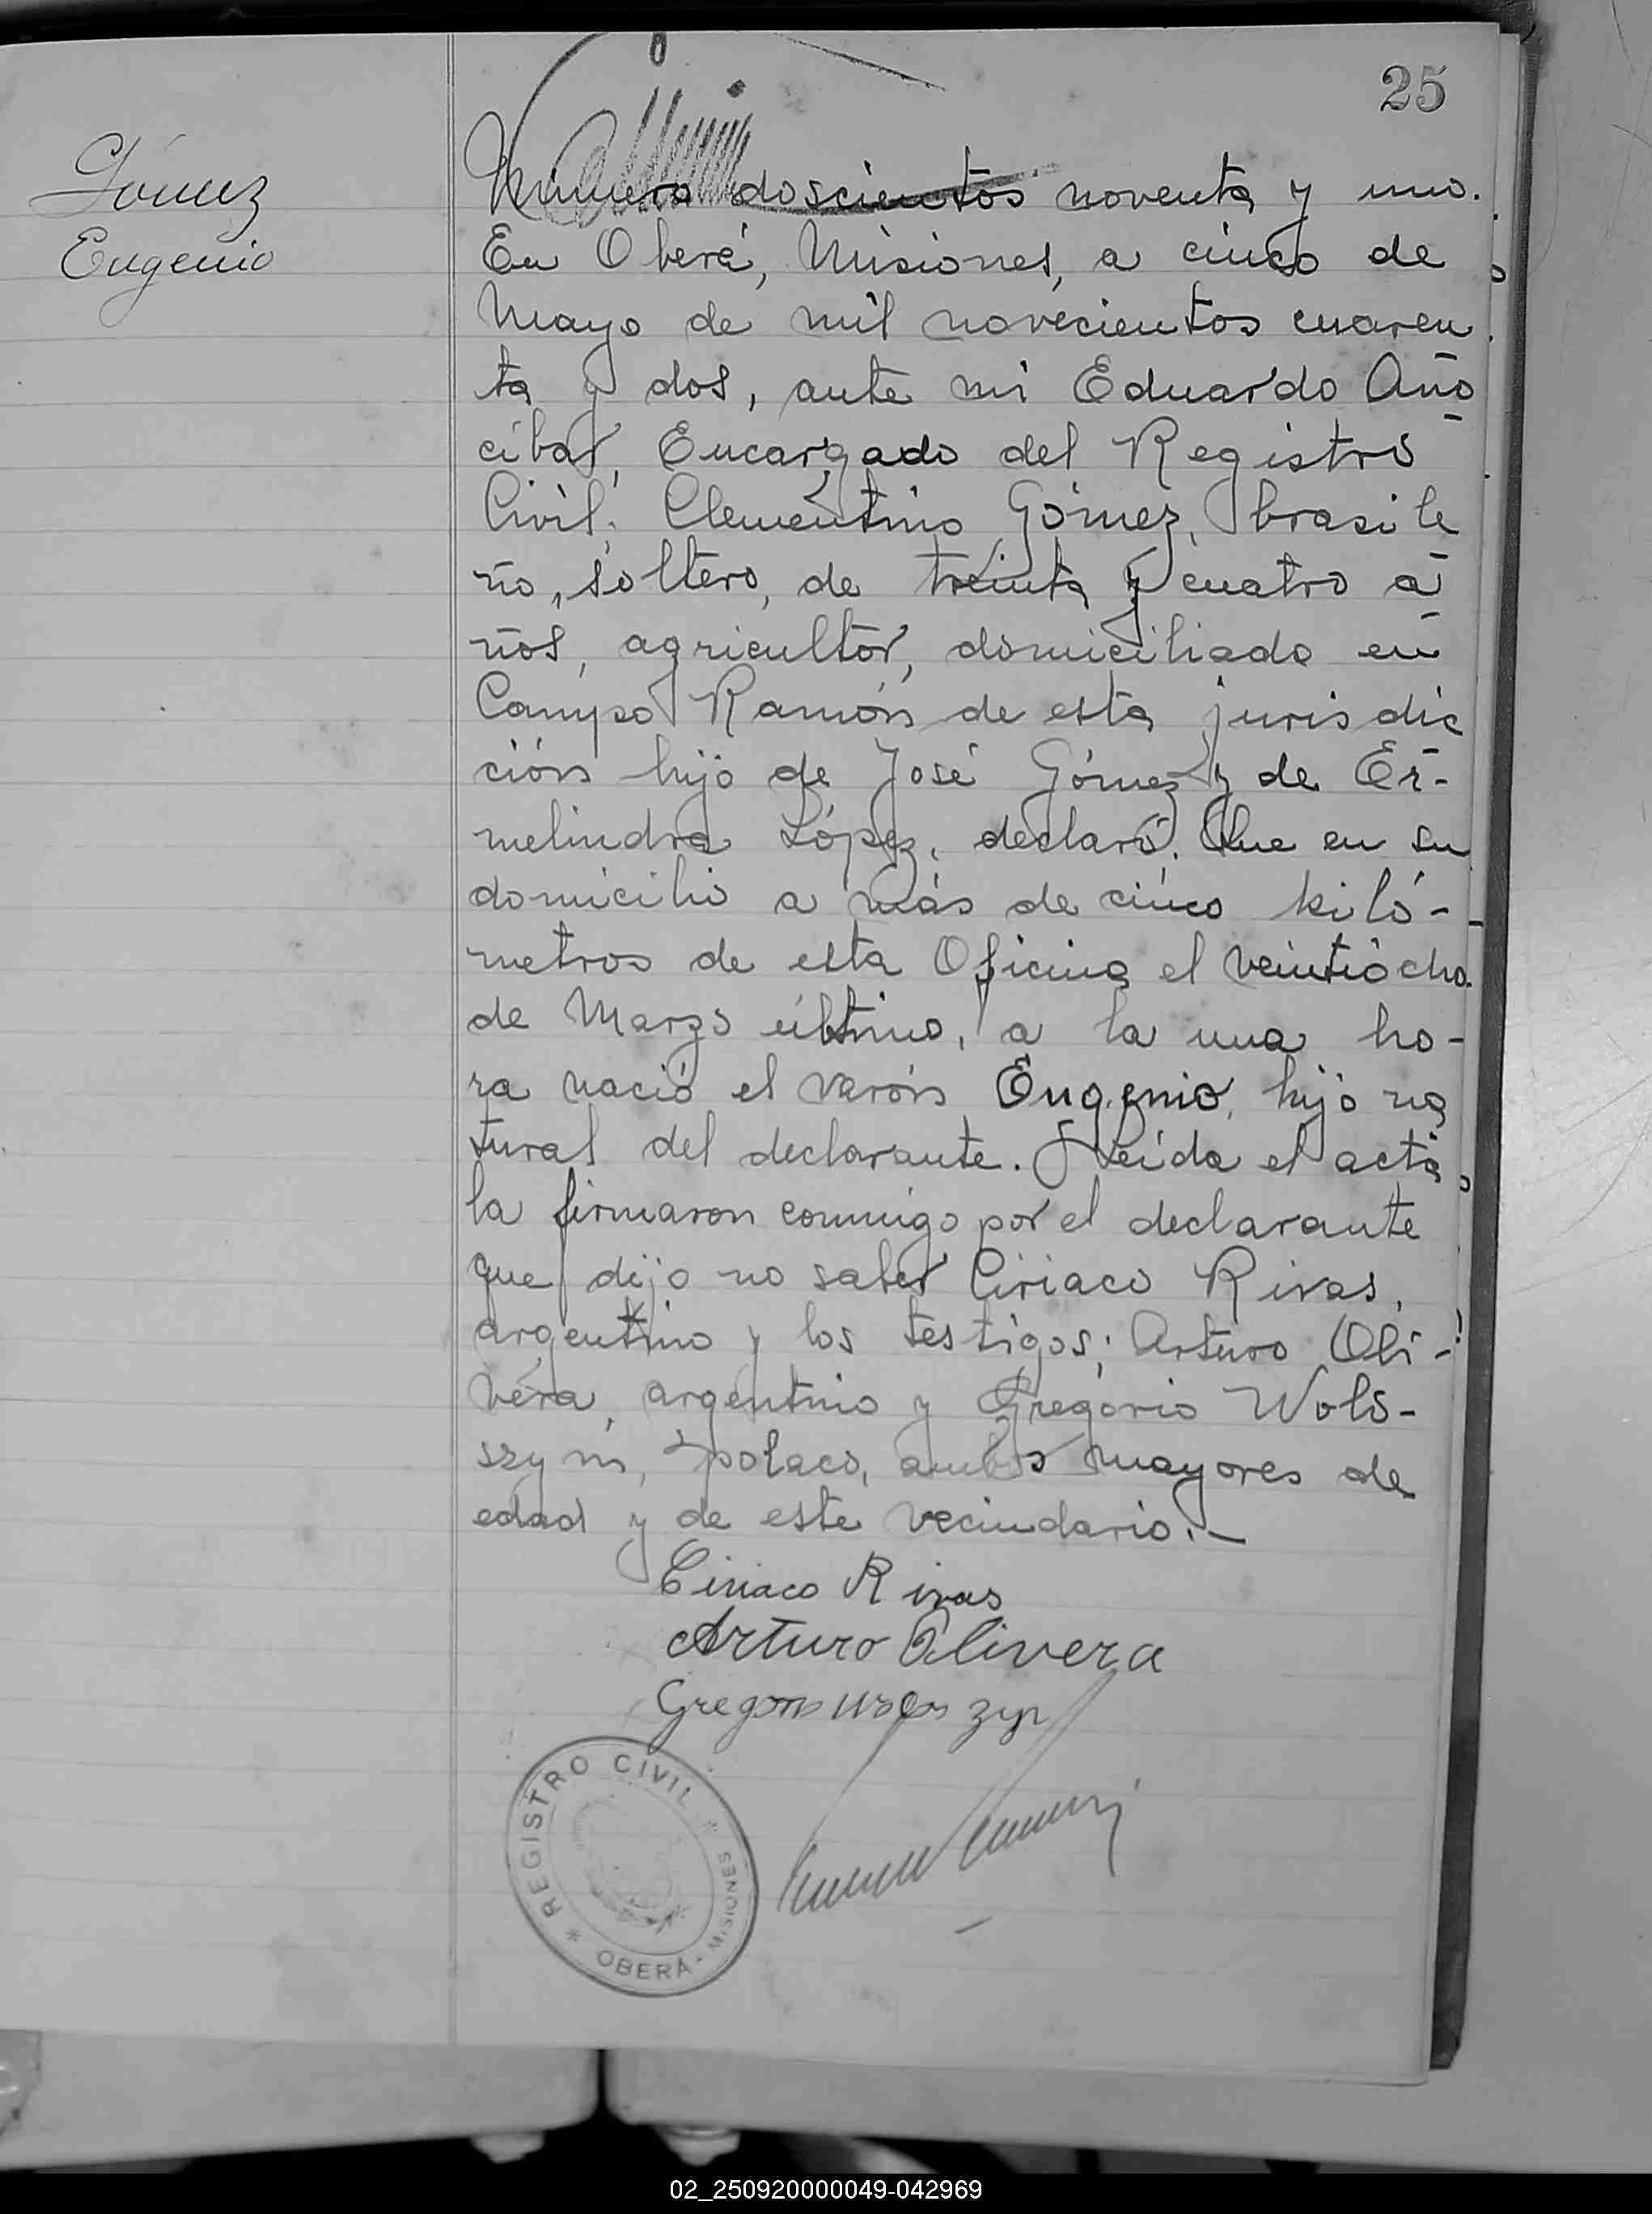 25
Gómez
Eugenio
Número doscientos noventa y uno.
En Oberá, Misiones, a cinco de
Mayo de mil novecientos cuaren
ta y dos, ante mi Eduardo Año
cibar, Encargado del Registro
Civil; Clementino Gómez, brasile
ño, soltero, de treinta y cuatro a
ños, agricultor, domiciliado en
Campo Ramón de esta jurisdic
ción hijo de José Gómez y de Er-
melindra López, declaró: Que en su
domicilio a más de cinco kiló-
metros de esta Oficina el veintiocho
de Marzo último, a la una ho-
ra nació el varón Eugenio, hijo na
tural del declarante. Leída el acta
la firmaron conmigo por el declarante
que dijo no saber Ciriaco Rivas,
argentino y los testigos; Arturo Oli-
vera, argentino y Gregorio Wolo-
szyn, polaco, ambos mayores de
edad y de este vecindario.-
Ciriaco Rivas
Arturo Olivera
REGISTRO CIVIL
OBERÁ - MISIONES
02_250920000049-042969